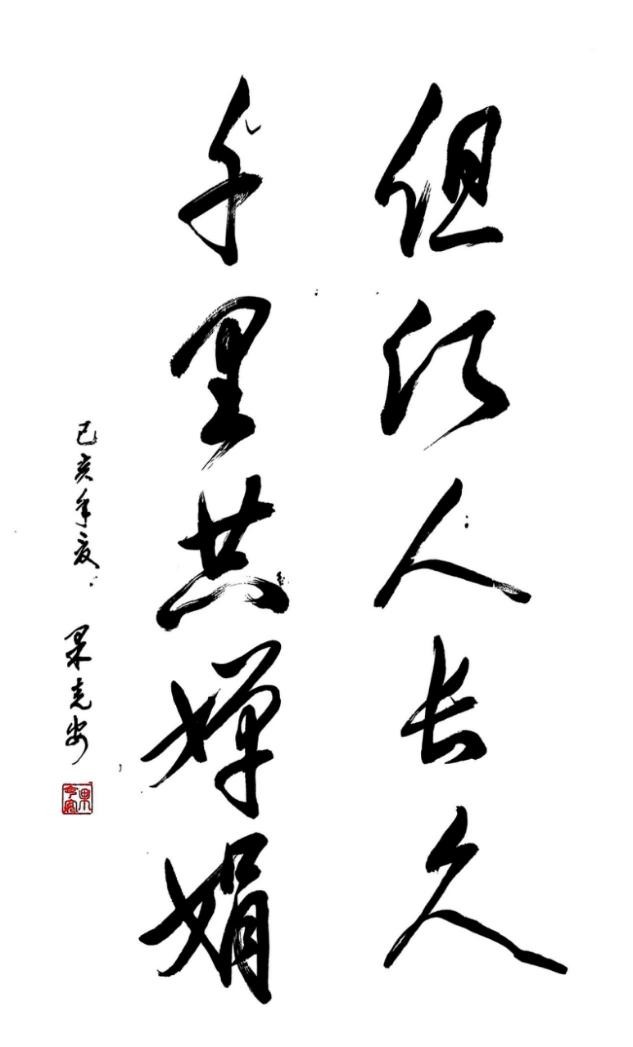 但願人长久
千里共婵娟
己亥年夏 果克安